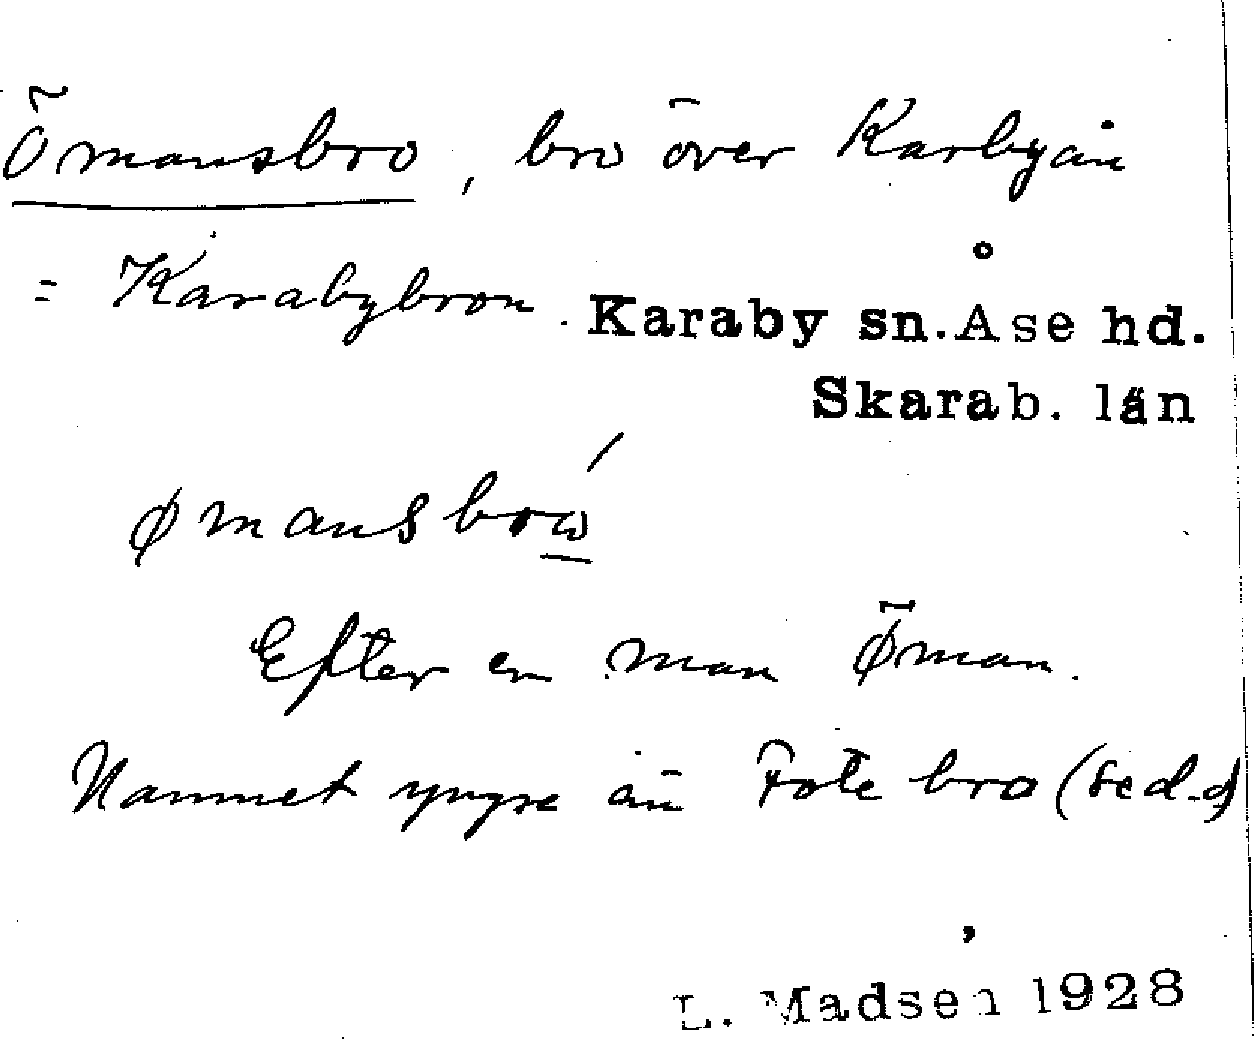 Ömansbro, bro över Karbyån
= Karabybron. Karaby sn. Åse hd.
Skarab. län
ømansbrώ
Efter en man Öman.
Namnet yngre än Fote bro (se d.o)
L. Madsen 1928